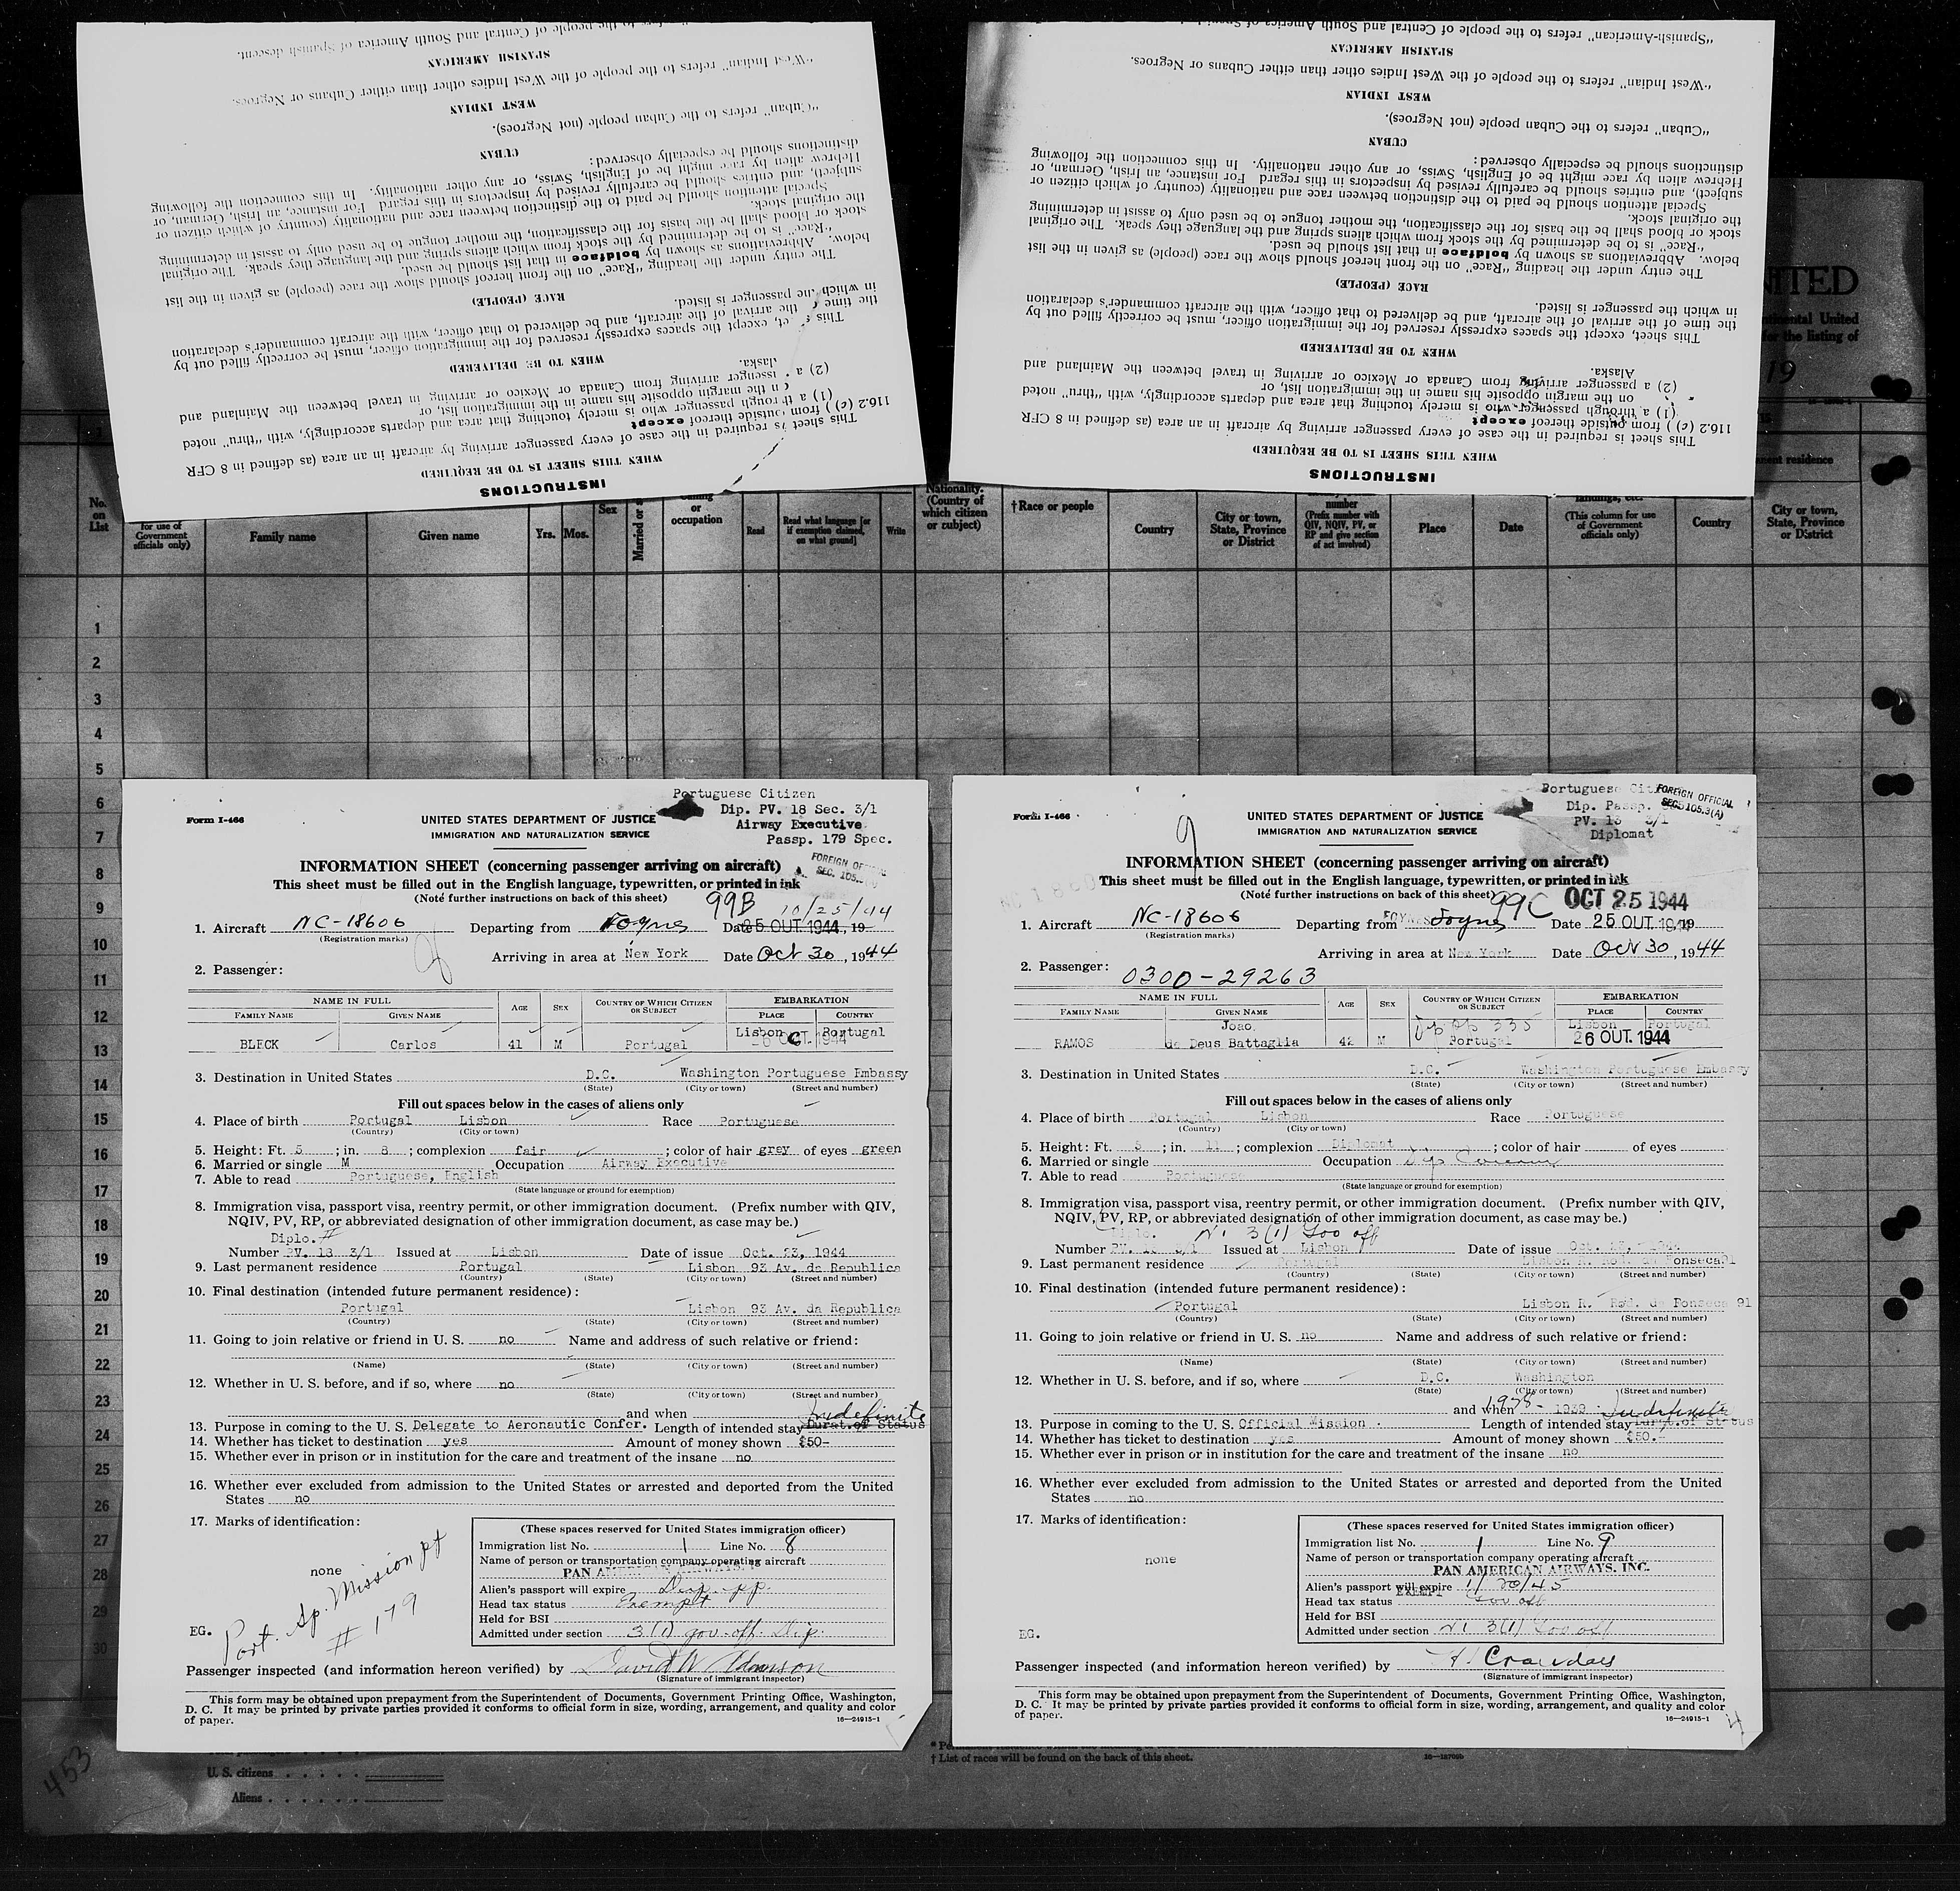 "Spanish-American" refers to the people of Central and South America of Spanish descent.
SPANISH AMERICAN
"West Indian" refers to the people of the West Indies other than either Cubans or Negroes.
WEST INDIAN
"Cuban" refers to the Cuban people (not Negroes).
CUBAN
distinctions should be especially observed:
Hebrew alien by race might be of English, Swiss, or any other nationality. In this connection the following
subject), and entries should be carefully revised by inspectors in this regard. For instance, an Irish, German, or
Special attention should be paid to the distinction between race and nationality (country of which citizen or
the original stock.
stock or blood shall be the basis for the classification, the mother tongue to be used only to assist in determining
"Race" is to be determined by the stock from which aliens spring and the language they speak. The original
below. Abbreviations as shown by boldface in that list should be used.
The entry under the heading "Race" on the front hereof should show the race (people) as given in the list
RACE (PEOPLE)
in which the passenger is listed.
the time of the arrival of the aircraft, and be delivered to that officer, with the aircraft commander's declaration
This sheet, except the spaces expressly reserved for the immigration officer, must be correctly filled out by
WHEN TO BE DELIVERED
Alaska.
(2) a passenger arriving from Canada or Mexico or arriving in travel between the Mainland and
on the margin opposite his name in the immigration list, or
(1) a through passenger who is merely touching that area and departs accordingly, with "thru" noted
116.2 (c) ) from outside thereof except
This sheet is required in the case of every passenger arriving by aircraft in an area (as defined in 8 CFR
WHEN THIS SHEET IS TO BE REQUIRED
INSTRUCTIONS
"Spanish-American" refers to the people of Central and South America of
SPANISH AMERICAN
"West Indian" refers to the people of the West Indies other than either Cubans or Negroes.
WEST INDIAN
"Cuban" refers to the Cuban people (not Negroes).
CUBAN
distinctions should be especially observed:
Hebrew alien by race might be of English, Swiss, or any other nationality. In this connection the following
subject), and entries should be carefully revised by inspectors in this regard. For instance, an Irish, German, or
Special attention should be paid to the distinction between race and nationality (country of which citizen or
the original stock.
stock or blood shall be the basis for the classification, the mother tongue to be used only to assist in determining
"Race" is to be determined by the stock from which aliens spring and the language they speak. The original
below. Abbreviations as shown by boldface in that list should be used.
The entry under the heading "Race" on the front hereof should show the race (people) as given in the list
RACE (PEOPLE)
in which the passenger is listed.
the time of the arrival of the aircraft, and be delivered to that officer, with the aircraft commander's declaration
This sheet, except the spaces expressly reserved for the immigration officer, must be correctly filled out by
WHEN TO BE DELIVERED
Alaska.
(2) a passenger arriving from Canada or Mexico or arriving in travel between the Mainland and
on the margin opposite his name in the immigration list, or
(1) a through passenger who is merely touching that area and departs accordingly, with "thru" noted
116.2 (c) ) from outside thereof except
This sheet is required in the case of every passenger arriving by aircraft in an area (as defined in 8 CFR
WHEN THIS SHEET IS TO BE REQUIRED
INSTRUCTIONS
NITED
United
for the listing of
19
residence
No. on List
for use of Government officials only)
Family name
Given name
Yrs.
Mos.
Sex
Married or
or occupation
Read
Read what language [or if exemption claimed, on what ground]
Write
Nationality. (Country of which citizen or subject)
† Race or people
Country
City or town, State, Province or District
number (Prefix number with QIV, NQIV, PV, or RP and give section of act involved)
Place
Date
(This column for use of Government officials only)
Country
City or town, State, Province or District
1
2
3
4
5
6
7
8
9
10
11
12
13
14
15
16
17
18
19
20
21
22
23
24
25
26
27
28
29
30
Portuguese Citizen
Dip. PV. 18 Sec. 3/1
Airway Executive
Passp. 179 Spec.
Form I-466
UNITED STATES DEPARTMENT OF JUSTICE
IMMIGRATION AND NATURALIZATION SERVICE
INFORMATION SHEET (concerning passenger arriving on aircraft)
FOREIGN
SEC. 105.
This sheet must be filled out in the English language, typewritten, or printed in ink
(Note further instructions on back of this sheet)
99B 10/25/44
1. Aircraft NC-18606 Departing from Foynes Date 25 OUT. 1944, 19
(Registration marks)
Arriving in area at New York Date Oct 30, 1944
2. Passenger:
NAME IN FULL AGE SEX COUNTRY OF WHICH CITIZEN OR SUBJECT EMBARKATION
FAMILY NAME GIVEN NAME PLACE COUNTRY
Lisbon Portugal
BLECK Carlos 41 M Portugal 26 OCT. 1944
3. Destination in United States D.C. Washington Portuguese Embassy
(State) (City or town) (Street and number)
Fill out spaces below in the cases of aliens only
4. Place of birth Portugal Lisbon Race Portuguese
(Country) (City or town)
5. Height: Ft. 5 ; in. 8 ; complexion fair ; color of hair grey of eyes green
6. Married or single M Occupation Airway Executive
7. Able to read Portuguese, English
(State language or ground for exemption)
8. Immigration visa, passport visa, reentry permit, or other immigration document. (Prefix number with QIV,
NQIV, PV, RP, or abbreviated designation of other immigration document, as case may be.)
Diplo. #
Number PV. 18 3/1 Issued at Lisbon Date of issue Oct. 23, 1944
9. Last permanent residence Portugal Lisbon 93 Av. da Republica
(Country) (State) (City or town) (Street and number)
10. Final destination (intended future permanent residence):
Portugal Lisbon 93 Av. da Republica
(Country) (State) (City or town) (Street and number)
11. Going to join relative or friend in U. S. no Name and address of such relative or friend:
(Name) (State) (City or town) (Street and number)
12. Whether in U. S. before, and if so, where no
(State) (City or town) (Street and number)
and when Indefinite
13. Purpose in coming to the U. S. Delegate to Aeronautic Confer. Length of intended stay Durat.of Status
14. Whether has ticket to destination yes Amount of money shown $50-
15. Whether ever in prison or in institution for the care and treatment of the insane no
16. Whether ever excluded from admission to the United States or arrested and deported from the United
States no
17. Marks of identification:
none
Port. Sp. Mission pp
# 179
EG.
(These spaces reserved for United States immigration officer)
Immigration list No. 1 Line No. 8
Name of person or transportation company operating aircraft
PAN AMERICAN AIRWAYS,
Alien's passport will expire Dip. pp.
Head tax status Exempt
Held for BSI
Admitted under section 3(1) gov. off. Dip.
Passenger inspected (and information hereon verified) by David W Adamson
(Signature of immigrant inspector)
This form may be obtained upon prepayment from the Superintendent of Documents, Government Printing Office, Washington,
D. C. It may be printed by private parties provided it conforms to official form in size, wording, arrangement, and quality and color
of paper.
16—24915-1
Portuguese
Dip. Passp.
PV. 18 3/1
Diplomat
FOREIGN OFFICIAL
SEC. 105.3(A)
Form I-466
9
UNITED STATES DEPARTMENT OF JUSTICE
IMMIGRATION AND NATURALIZATION SERVICE
INFORMATION SHEET (concerning passenger arriving on aircraft)
This sheet must be filled out in the English language, typewritten, or printed in ink
(Note further instructions on back of this sheet)
99C OCT 25 1944
1. Aircraft NC-18606 Departing from FOYNES Foynes Date 25 OUT. 1944, 19
(Registration marks)
Arriving in area at New York Date Oct 30, 1944
2. Passenger: 0300-29263
NAME IN FULL AGE SEX COUNTRY OF WHICH CITIZEN OR SUBJECT EMBARKATION
FAMILY NAME GIVEN NAME PLACE COUNTRY
Joao, Dip pp 335 Lisbon Portugal
RAMOS de Deus Battaglia 42 M Portugal 26 OUT. 1944
3. Destination in United States D.C. Washington Portuguese Embassy
(State) (City or town) (Street and number)
Fill out spaces below in the cases of aliens only
4. Place of birth Portugal Lisbon Race Portuguese
(Country) (City or town)
5. Height: Ft. 5 ; in. 11 ; complexion Diplomat ; color of hair of eyes
6. Married or single Occupation Dip
7. Able to read Portuguese
(State language or ground for exemption)
8. Immigration visa, passport visa, reentry permit, or other immigration document. (Prefix number with QIV,
NQIV, PV, RP, or abbreviated designation of other immigration document, as case may be.)
Diplo. 3(1) Gov off
Number PV. 18 3/1 Issued at Lisbon Date of issue Oct.
9. Last permanent residence Portugal Lisbon R. Rod. da Fonseca 91
(Country) (State) (City or town) (Street and number)
10. Final destination (intended future permanent residence):
Portugal Lisbon R. Rod. da Fonseca 91
(Country) (State) (City or town) (Street and number)
11. Going to join relative or friend in U. S. no Name and address of such relative or friend:
(Name) (State) (City or town) (Street and number)
12. Whether in U. S. before, and if so, where D.C. Washington
(State) (City or town) (Street and number)
and when 1938- 1939 Indefinite
13. Purpose in coming to the U. S. Official Mission. Length of intended stay Durat.of Status
14. Whether has ticket to destination yes Amount of money shown $50.-
15. Whether ever in prison or in institution for the care and treatment of the insane no
16. Whether ever excluded from admission to the United States or arrested and deported from the United
States no
17. Marks of identification:
none
EG.
(These spaces reserved for United States immigration officer)
Immigration list No. 1 Line No. 9
Name of person or transportation company operating aircraft
PAN AMERICAN AIRWAYS, INC.
Alien's passport will expire 1/20/45
Head tax status EXEMPT Gov off
Held for BSI
Admitted under section 3(1) Gov off
Passenger inspected (and information hereon verified) by H. Crandall
(Signature of immigrant inspector)
This form may be obtained upon prepayment from the Superintendent of Documents, Government Printing Office, Washington,
D. C. It may be printed by private parties provided it conforms to official form in size, wording, arrangement, and quality and color
of paper.
16—24915-1
4
453
U. S. citizens
Aliens
† List of races will be found on the back of this sheet.